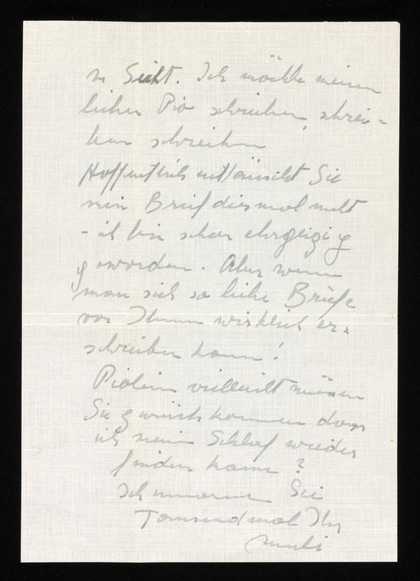 in Sicht. Ich möchte meinen
lieben Pio schreiben, schrei=
ben schreiben
Hoffentlich enttäuscht Sie
mein Brief diesmal nicht
- ich bin schon ehrgeizig
geworden. Aber wenn
man sich so liebe Briefe
von Ihnen wirklich er=
schreiben kann!
Piolein vielleicht müssen
Sie zurück kommen dass
ich meinen Schlaf wieder
finden kann?
Ich umarme Sie
Tausendmal Ihr